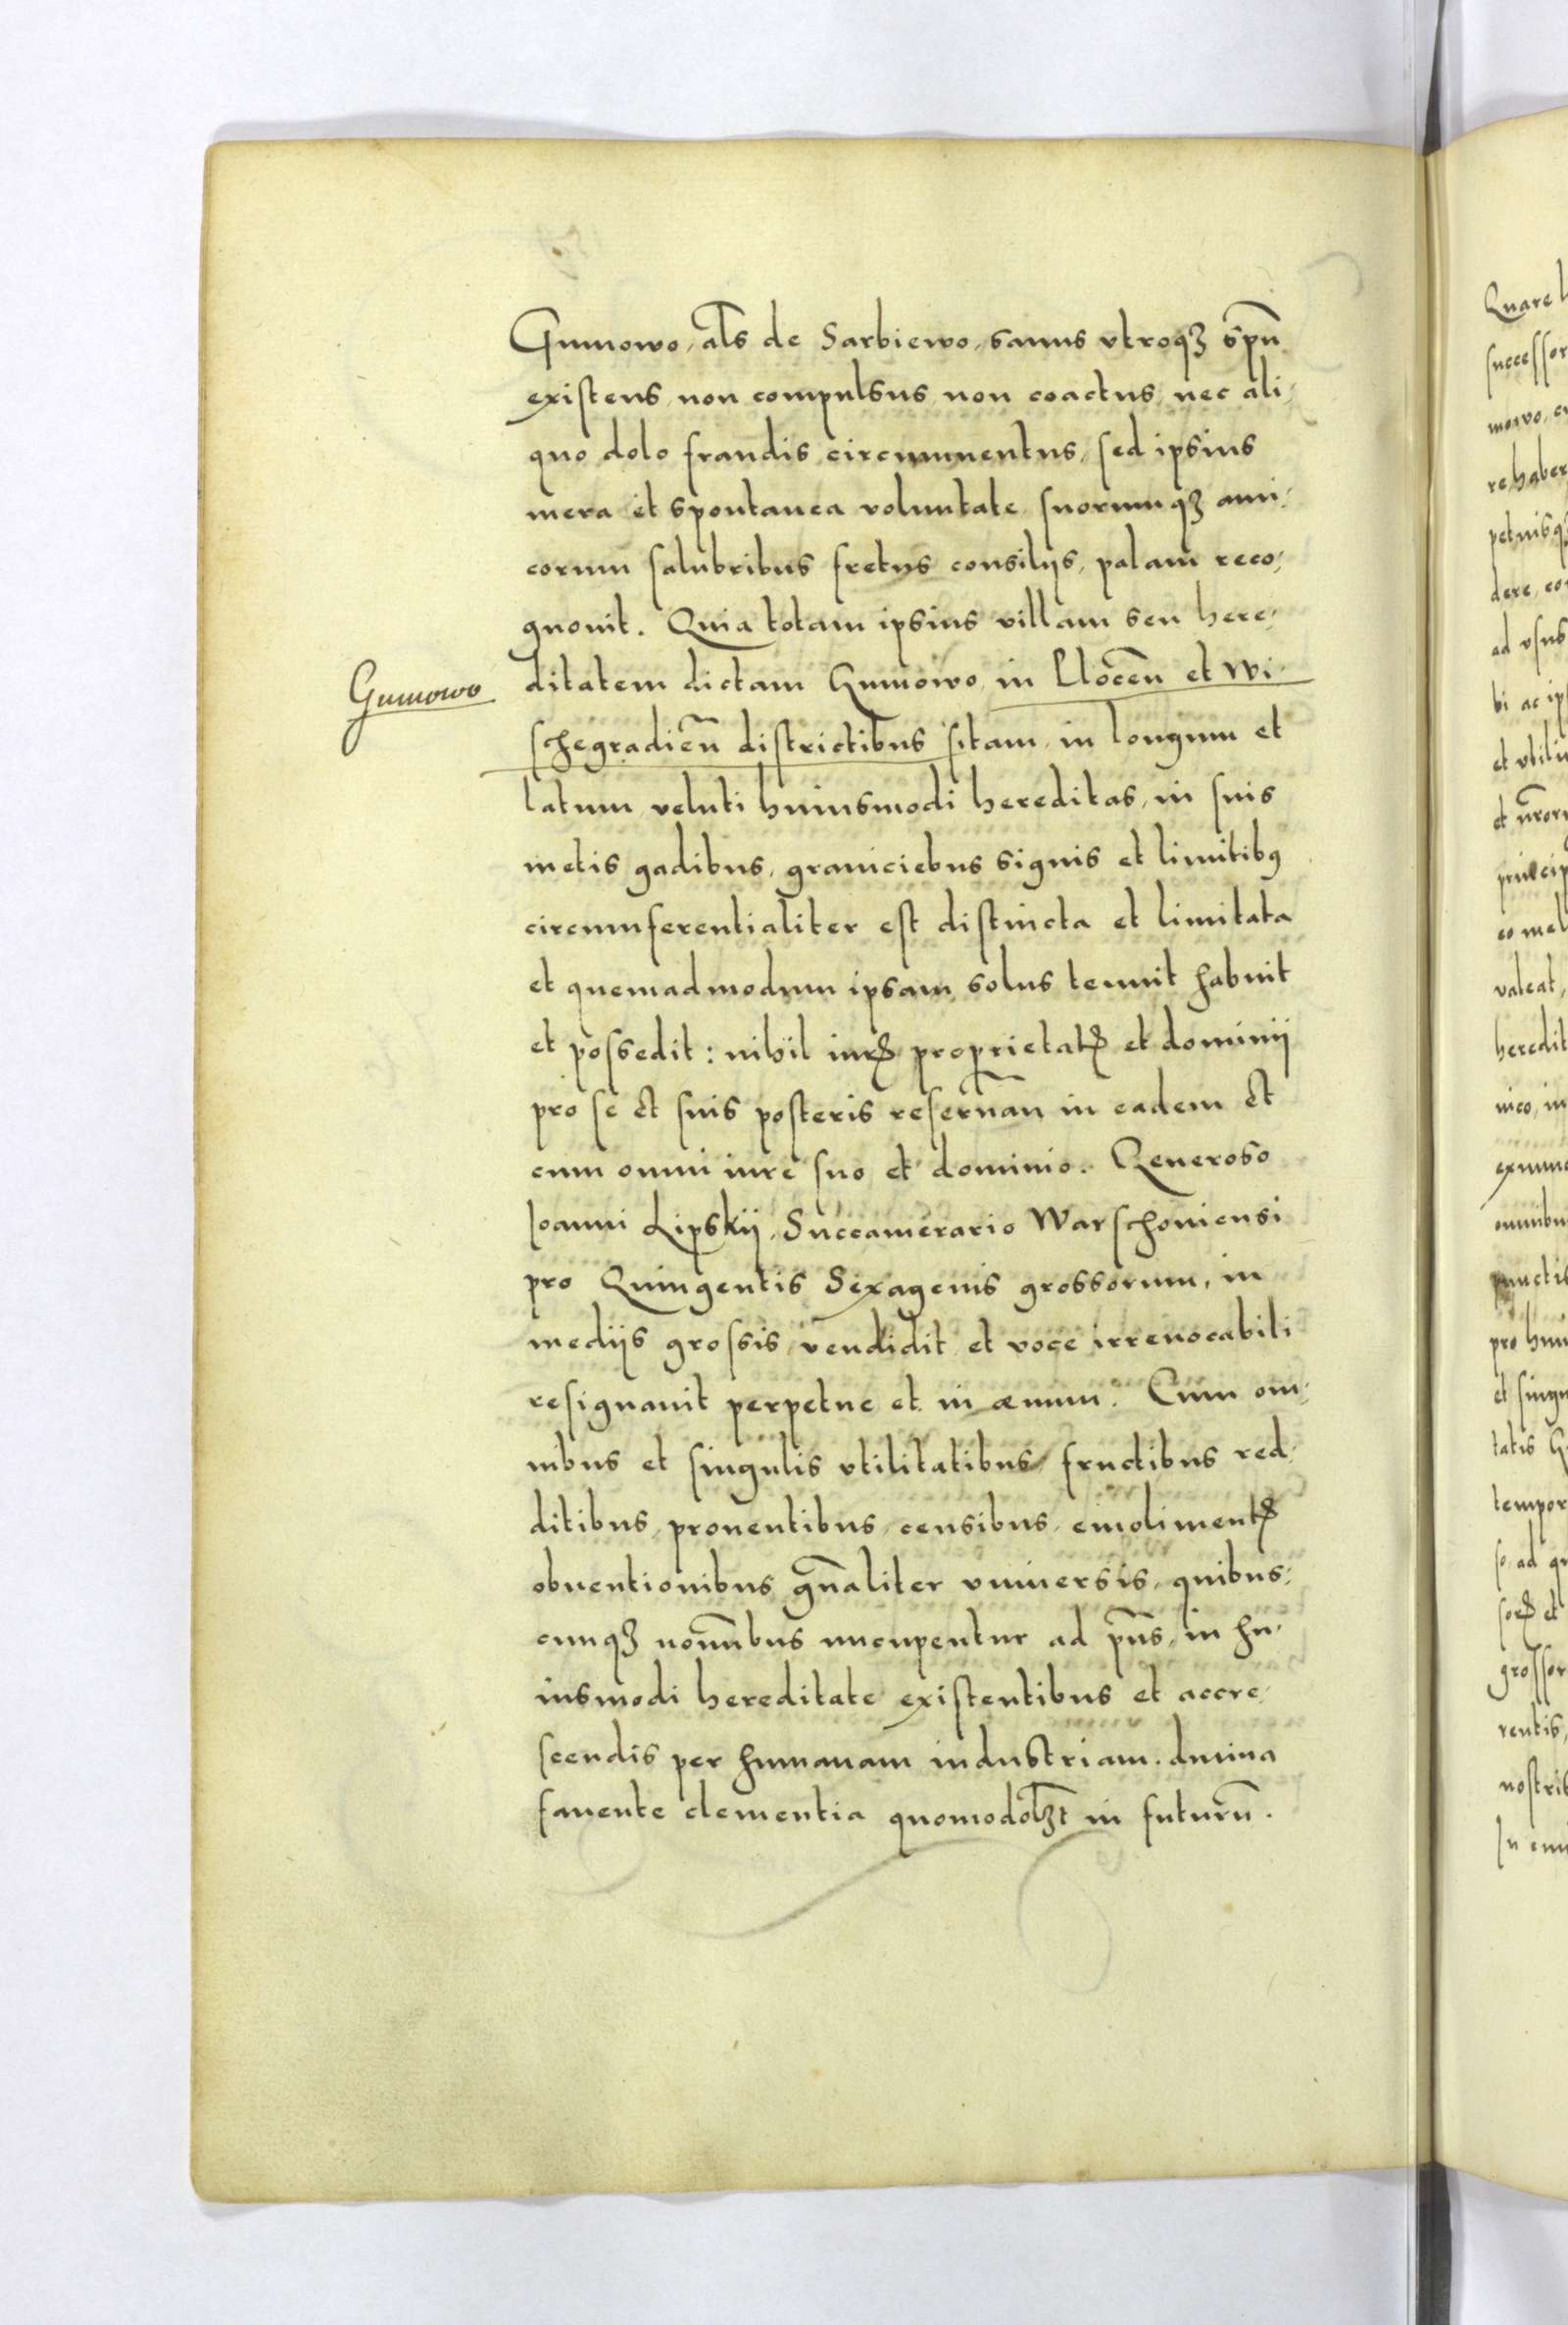 Gumowo, als de Sarbiewo, sanus vtroqꝫ spū
existens, non compulsus non coactus, nec ali-
quo dolo fraudis circumuentus, sed ipsius
mera et spontanea voluntate, suorumqꝫ ami-
corum salubribus fretus consilijs, palam reco-
gnouit. Quia totam ipsius villam seu here-
Gumowo
ditatem dictam Gumowo, in Plocen̄ et Wi-
schegradien̄ districtibus sitam, in longum et
latum, veluti huiusmodi hereditas, in suis
metis gadibus, graniciebus signis et limitibꝰ
circumferentialiter est distincta et limitata
et quemadmodum ipsam, solus tenuit habuit
et possedit: nihil iurꝭ proprietatꝭ et dominij
pro se et suis posteris reseruan̄ in eadem et
cum omni iure suo et dominio. Generoso
Ioanni Lipskij, Succamerario Warschouiensi
pro Quingentis Sexagenis grossorum, in
medijs grossis, vendidit, et voce irreuocabili
resignauit perpetue et in æuum. Cum om-
nibus et singulis vtilitatibus, fructibus red-
ditibus, prouentibus, censibus, emolimentꝭ
obuentionibus gn̄aliter vniuersis, quibus-
cunqꝫ nomī̄bus nucupentur ad pn̄s, in hu-
iusmodi hereditate existentibus et accre-
scendis per humanam industriam. diuina
fauente clementia quomodolꝫt in futurū.
Quare